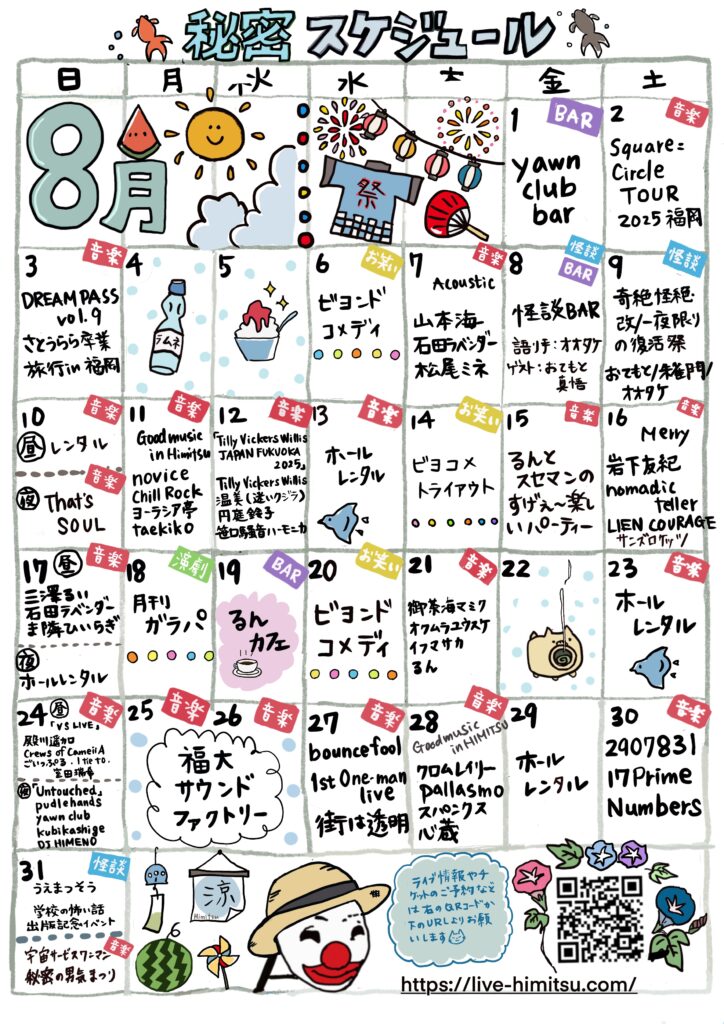 秘密 スケジュール
日 月 火 水 土 金 土
8月
祭
1 BAR
yawn
club
bar
2 音楽
Square=
Circle
TOUR
2025 福岡
3 音楽
DREAM PASS
vol.9
さとうらら卒業
旅行 in 福岡
4
ラムネ
5
6 お笑い
ビヨンド
コメディ
7 音楽
Acoustic
山本海
石田ラベンダー
松尾ミネ
8 怪談
BAR
怪談BAR
語り手:オオタケ
ゲスト:おてもと
真悟
9 怪談
奇絶怪絶
改/一夜限り
の復活祭
おてもと/朱雀門/
オオタケ
10 音楽
昼 レンタル
音楽
夜 That's
SOUL
11 音楽
Goodmusic
in Himitsu
novice
Chill Rock
ヨーラシア亭
taekiko
12 音楽
「Tilly Vickers Willis
JAPAN FUKUOKA
2025」
Tilly Vickers Willis
温美(迷いクジラ)
円庭鈴子
笹口騒音ハーモニカ
13 音楽
ホール
レンタル
14 お笑い
ビヨコメ
トライアウト
15 音楽
るんと
スセマンの
すげぇ〜楽し
いパーティー
16 音楽
Merry
岩下友紀
nomadic
teller
LIEN COURAGE
サンズログッツ
17 昼 音楽
三澤るい
石田ラベンダー
ま隣ひいらぎ
夜
ホールレンタル
18 演劇
月刊
ガラパ
19 BAR
るん
カフェ
20 お笑い
ビヨンド
コメディ
21 音楽
御茶海マミク
オクムラユウスケ
イフマサカ
るん
22
23 音楽
ホール
レンタル
24 昼 音楽
「VS LIVE」
殿川遥加
Crews of CameiiA
ごいっぷる.1 tie to.
宮田瑞希
夜 「Untouched」
pudlehands
yawn club
kubikashige
DJ HIMENO
25 音楽
26 音楽
福大
サウンド
ファクトリー
27 音楽
bouncefool
1st One-man
live
街は透明
28 音楽
Goodmusic
in HIMITSU
クロムレイリー
pallasmo
スパンクス
心蔵
29
ホール
レンタル
30 音楽
2907831
17Prime
Numbers
31 怪談
うえまっそう
学校の怖い話
出版記念イベント
音楽
宇宙サービスワンマン
秘密の男気まつり
涼
Himitsu
ライブ情報やチ
ケットのご予約など
は右のQRコードか
下のURLよりお願
いします
https://live-himitsu.com/